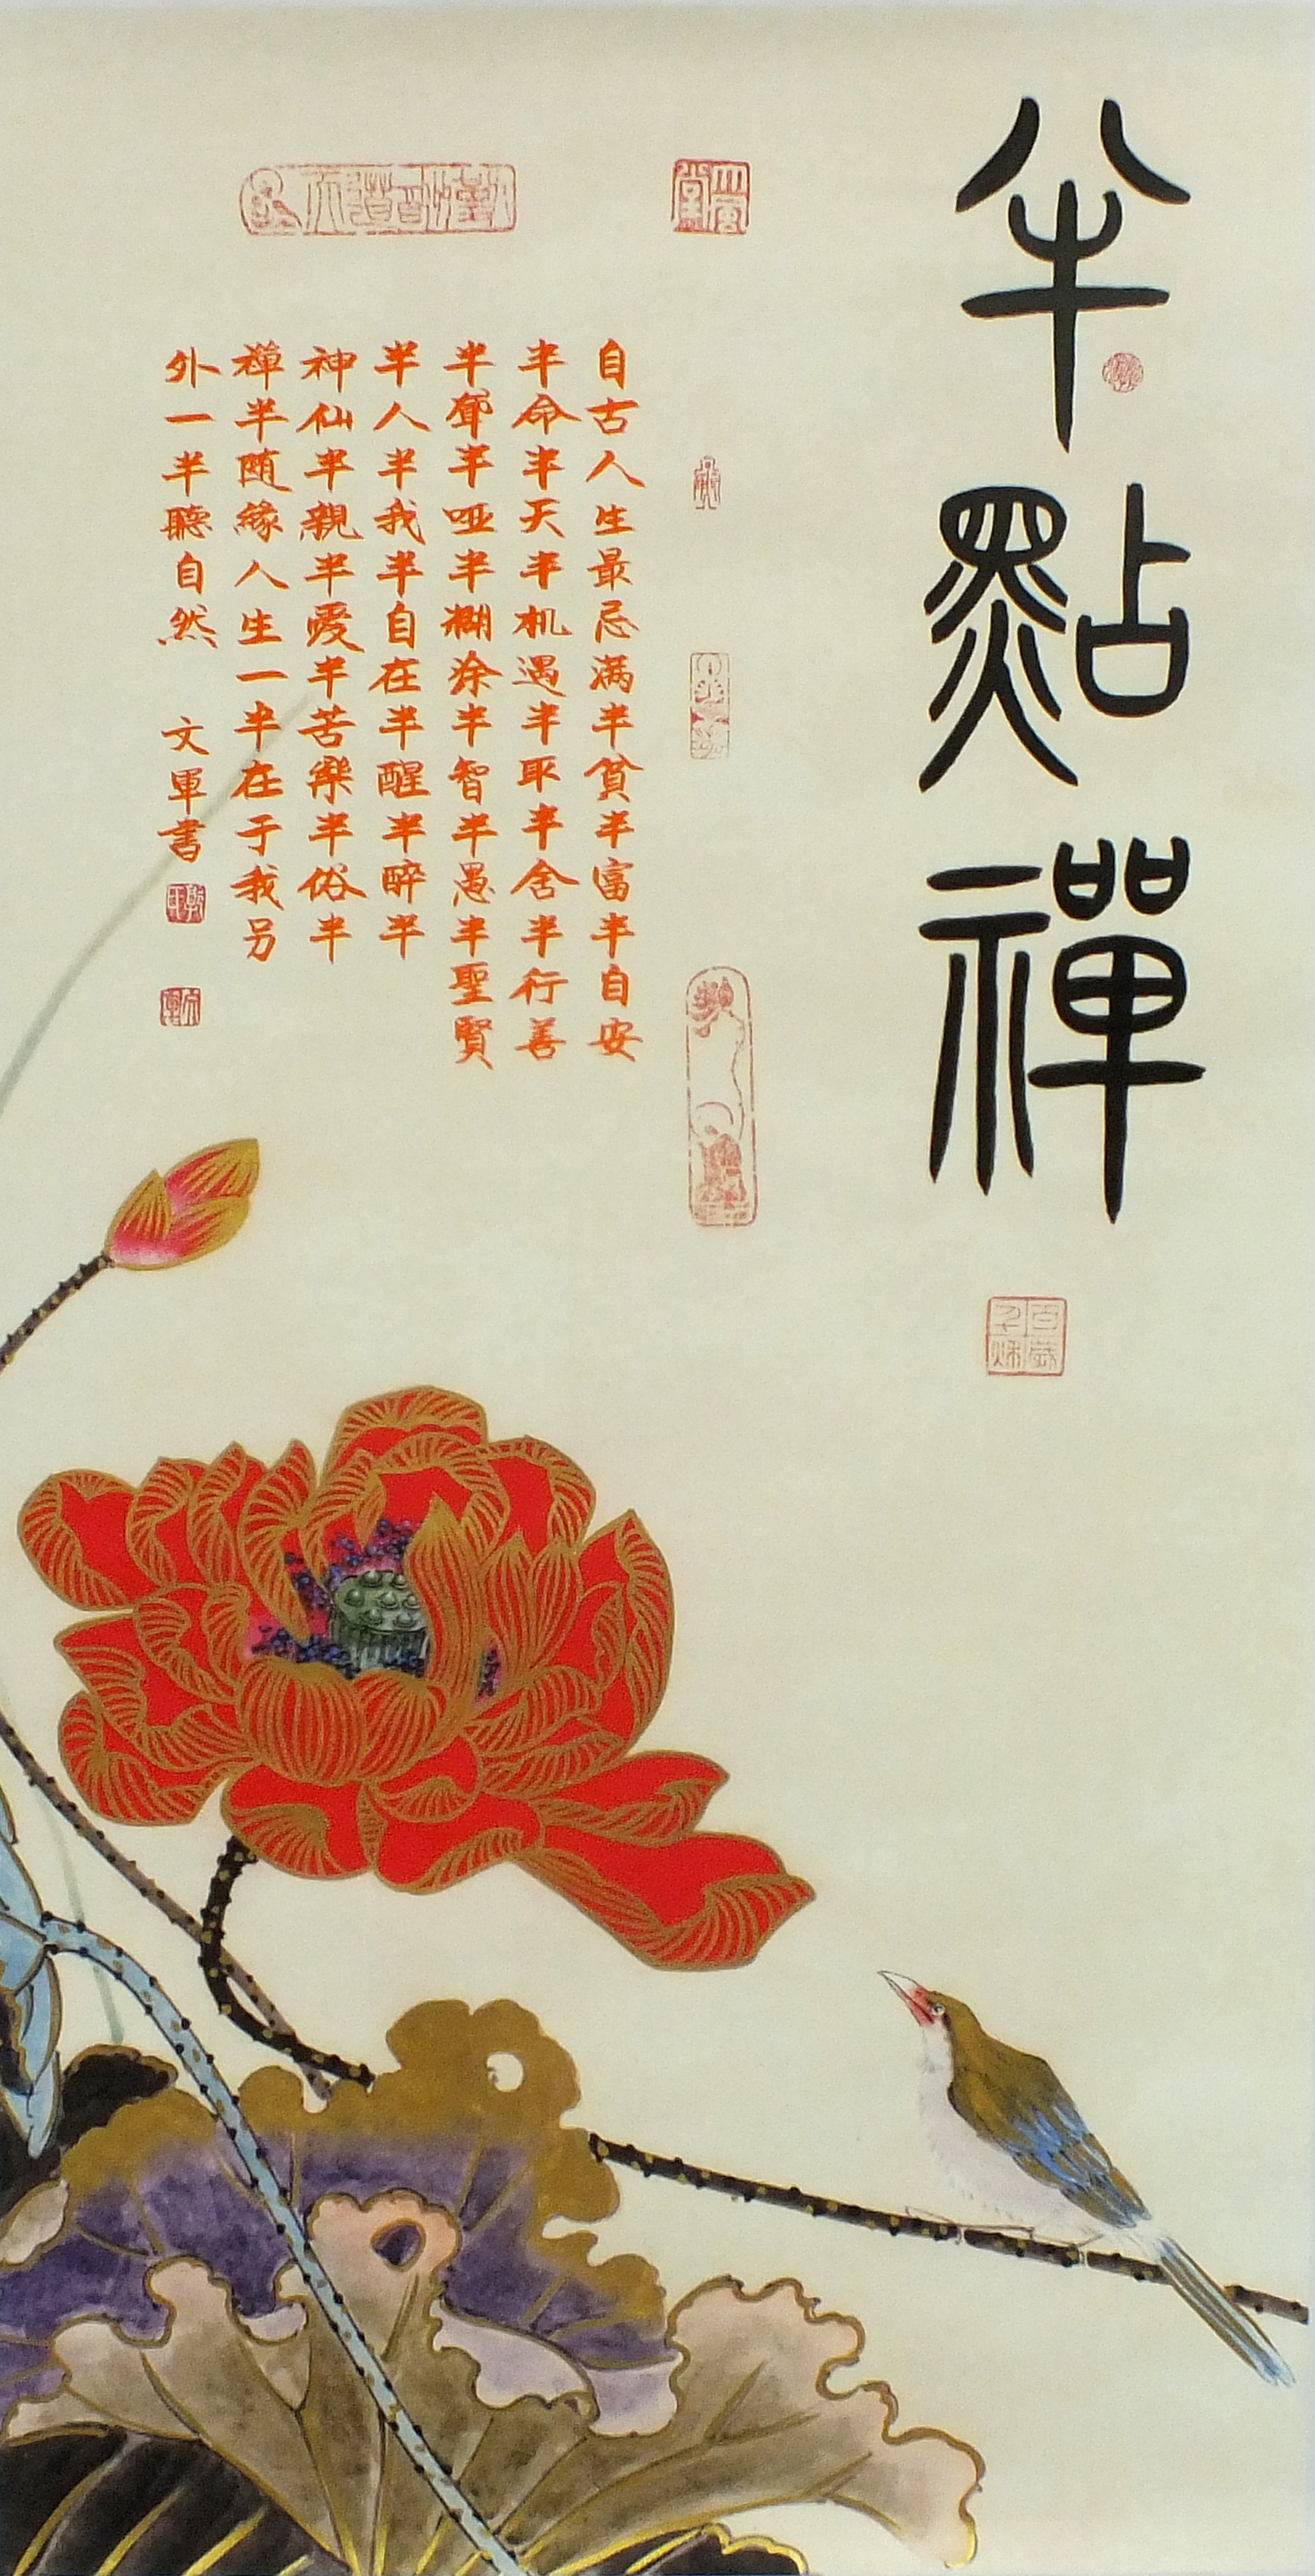 半點禪
百歲千秋
大風堂
天道酬勤
自古人生最忌满半貧半富半自安
半命半天半机遇半取半舍半行善
半聾半哑半糊涂半智半愚半聖賢
半人半我半自在半醒半醉半
神仙半親半愛半苦樂半俗半
禪半随緣人生一半在于我另
外一半聽自然 文軍書